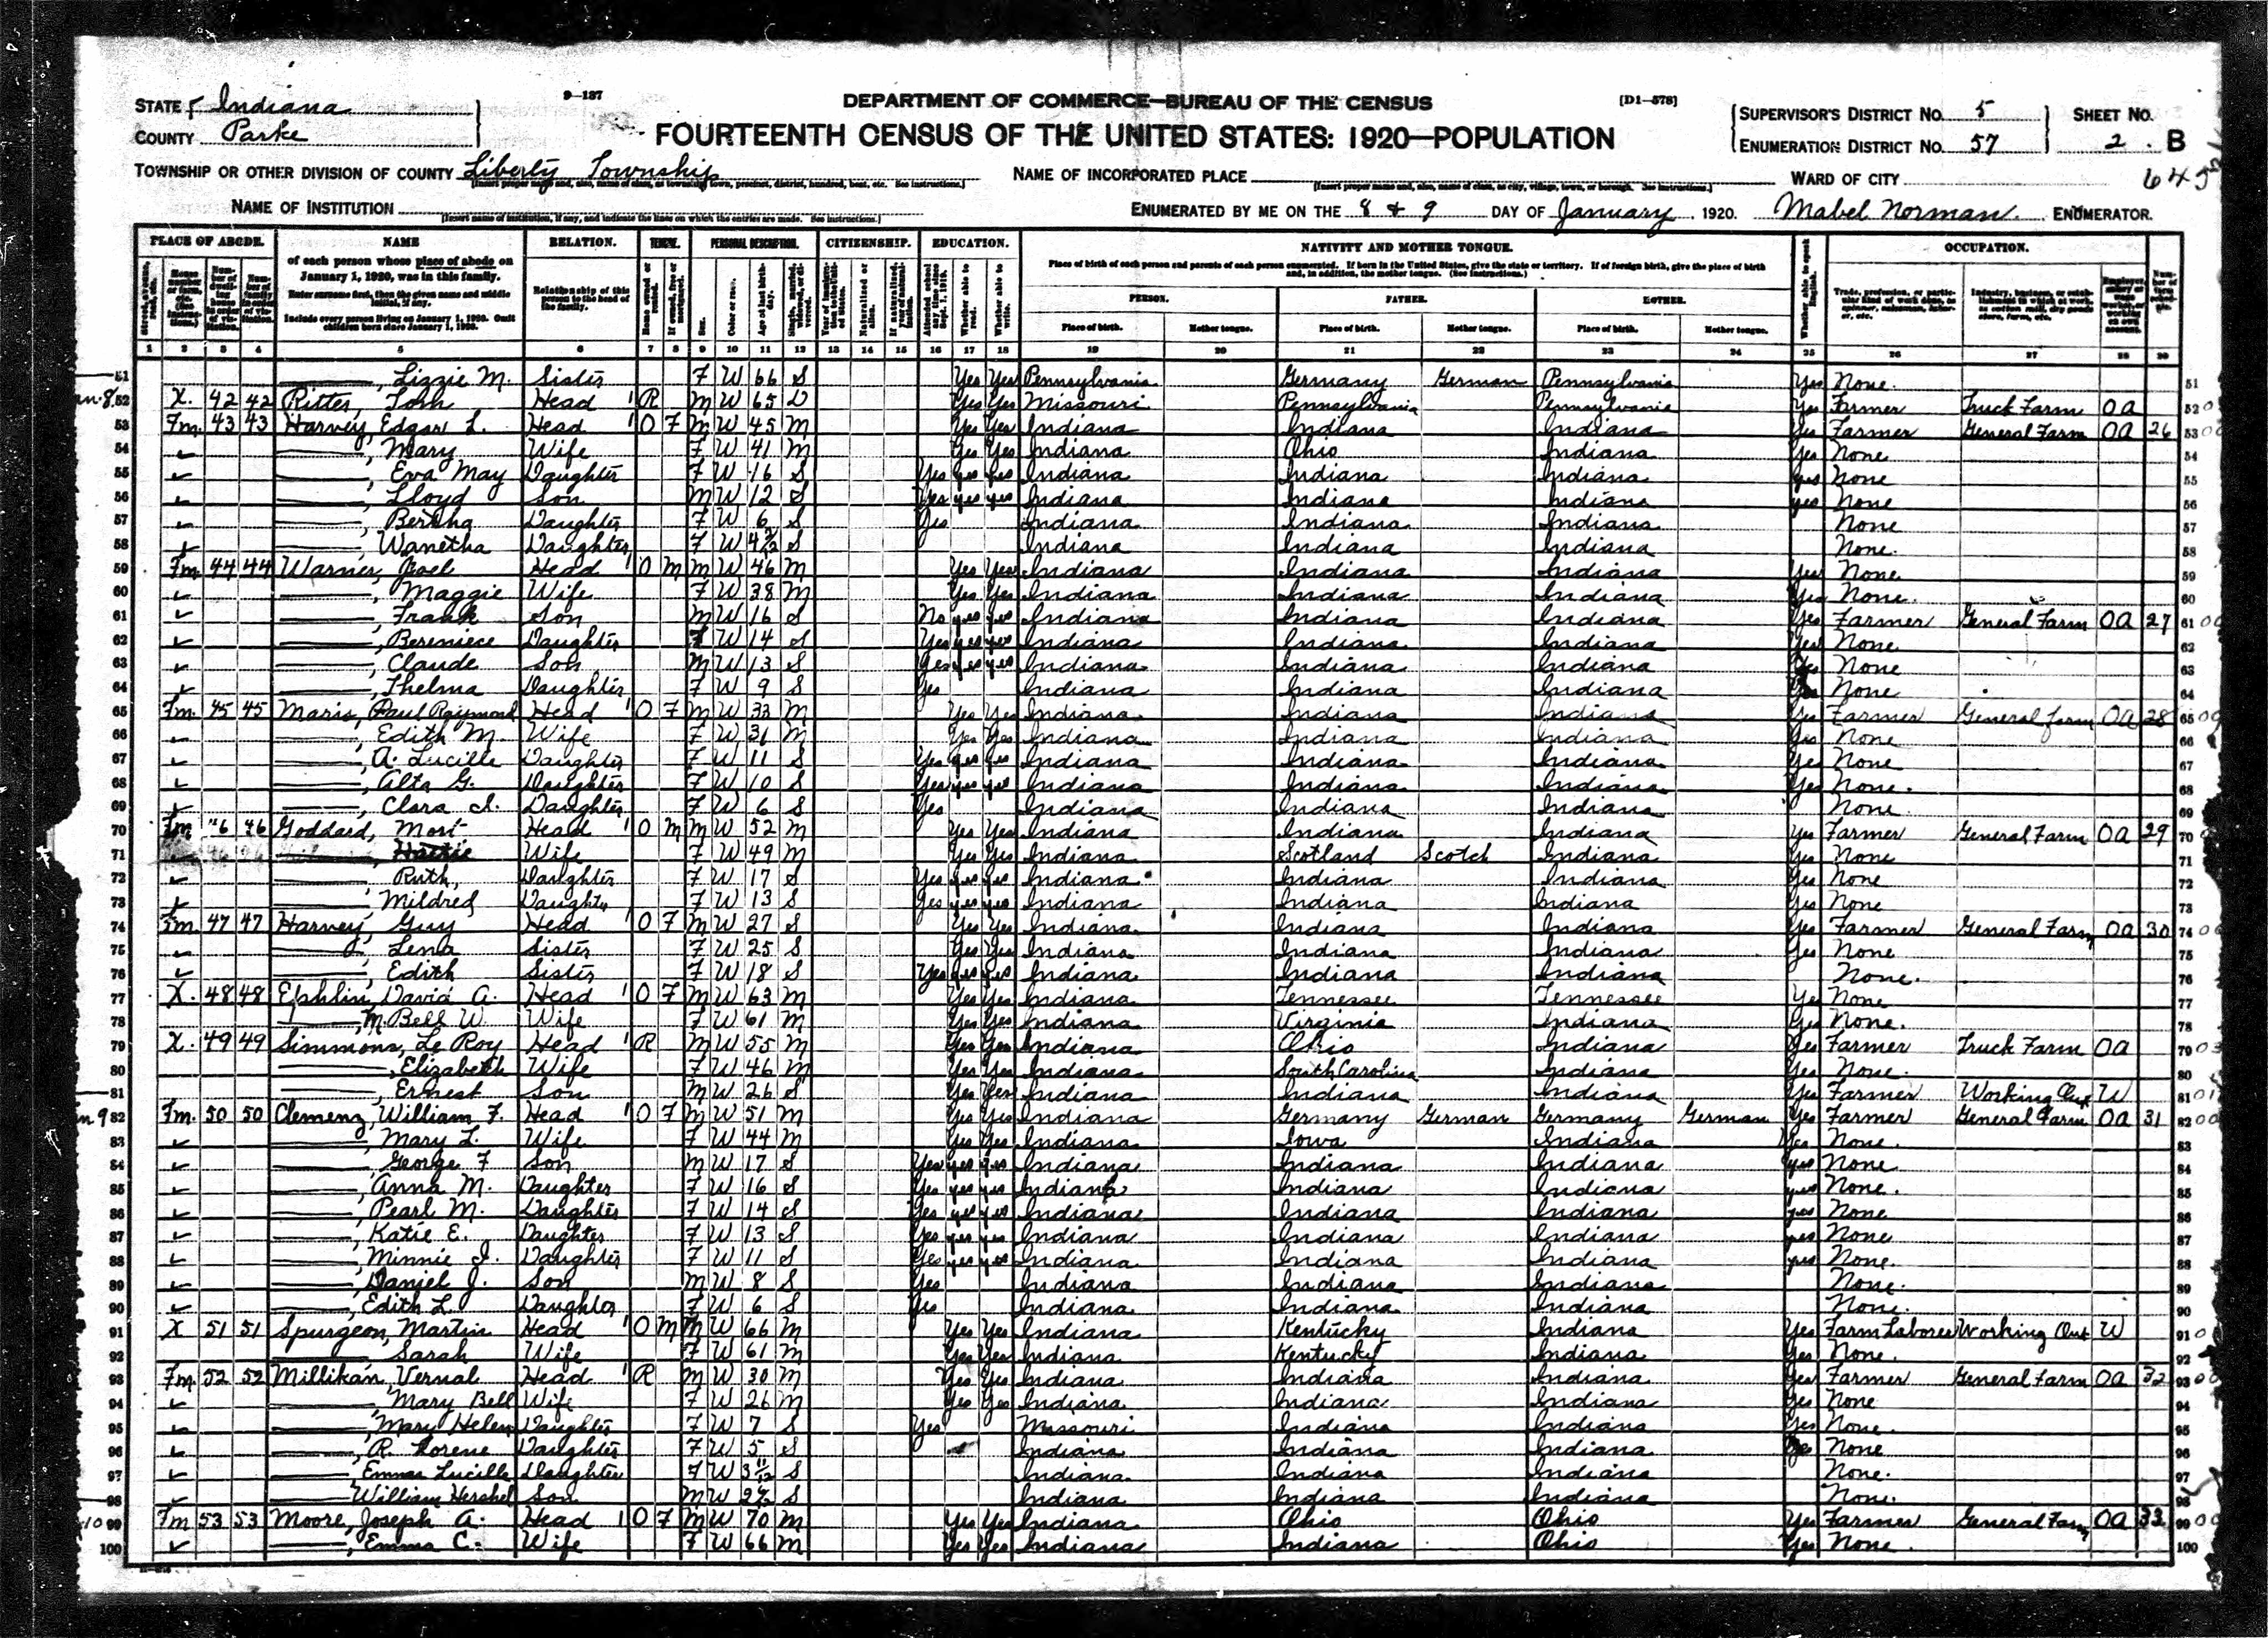 9—137
DEPARTMENT OF COMMERCE—BUREAU OF THE CENSUS
[D1—578]
STATE Indiana
COUNTY Parke
FOURTEENTH CENSUS OF THE UNITED STATES: 1920—POPULATION
SUPERVISOR'S DISTRICT NO. 5
ENUMERATION DISTRICT NO. 57
SHEET NO. 2 B
TOWNSHIP OR OTHER DIVISION OF COUNTY Liberty Township
NAME OF INCORPORATED PLACE
WARD OF CITY
NAME OF INSTITUTION
ENUMERATED BY ME ON THE 8 & 9 DAY OF January, 1920. Mabel Norman ENUMERATOR.
PLACE OF ABODE. NAME RELATION. TENURE. PERSONAL DESCRIPTION. CITIZENSHIP. EDUCATION. NATIVITY AND MOTHER TONGUE. OCCUPATION.
of each person whose place of abode on January 1, 1920, was in this family.
Enter surname first, then the given name and middle initial, if any.
Include every person living on January 1, 1920. Omit children born since January 1, 1920.
Relationship of this person to the head of the family.
Place of birth of each person and parents of each person enumerated. If born in the United States, give the state or territory. If of foreign birth, give the place of birth and, in addition, the mother tongue. (See Instructions.)
PERSON. FATHER. MOTHER.
Place of birth. Mother tongue. Place of birth. Mother tongue. Place of birth. Mother tongue.
1 2 3 4 5 6 7 8 9 10 11 12 13 14 15 16 17 18 19 20 21 22 23 24 25 26 27 28 29
51 Lizzie M. Sister F W 66 S Yes Yes Pennsylvania Germany German Pennsylvania Yes None 51
52 X. 42 42 Ritter, Tom Head R M W 65 D Yes Yes Missouri Pennsylvania Pennsylvania Yes Farmer Truck Farm OA 52
53 Fm. 43 43 Harvey, Edgar L. Head O F M W 45 M Yes Yes Indiana Indiana Indiana Yes Farmer General Farm OA 26 53
54 Mary Wife F W 41 M Yes Yes Indiana Ohio Indiana Yes None 54
55 Eva May Daughter F W 16 S Yes yes yes Indiana Indiana Indiana yes None 55
56 Lloyd Son M W 12 S Yes yes yes Indiana Indiana Indiana yes None 56
57 Bertha Daughter F W 6 S Yes Indiana Indiana Indiana None 57
58 Wanetha Daughter F W S Indiana Indiana Indiana None. 58
59 Fm 44 44 Warner, Joel Head O M M W 46 M Yes Yes Indiana Indiana Indiana Yes None 59
60 Maggie Wife F W 38 M Yes Yes Indiana Indiana Indiana Yes None. 60
61 Frank Son M W 16 S No yes yes Indiana Indiana Indiana Yes Farmer General Farm OA 27 61
62 Berniece Daughter F W 14 S Yes yes yes Indiana Indiana Indiana Yes None 62
63 Claude Son M W 13 S Yes yes yes Indiana Indiana Indiana Yes None 63
64 Thelma Daughter F W 9 S Yes Indiana Indiana Indiana None 64
65 Fm. 45 45 Maris, Paul Raymond Head O F M W 33 M Yes Yes Indiana Indiana Indiana Yes Farmer General farm OA 28 65
66 Edith M. Wife F W 31 M Yes Yes Indiana Indiana Indiana Yes None 66
67 A. Lucille Daughter F W 11 S Yes yes yes Indiana Indiana Indiana Yes None 67
68 Alta G. Daughter F W 10 S Yes yes yes Indiana Indiana Indiana Yes None. 68
69 Clara I. Daughter F W 6 S Yes Indiana Indiana Indiana None. 69
70 Fm 46 46 Goddard, Mort Head O M M W 52 M Yes Yes Indiana Indiana Indiana Yes Farmer General Farm OA 29 70
71 Hattie Wife F W 49 M Yes Yes Indiana Scotland Scotch Indiana Yes None 71
72 Ruth, Daughter F W 17 S Yes yes yes Indiana Indiana Indiana Yes None 72
73 Mildred Daughter F W 13 S Yes yes yes Indiana Indiana Indiana Yes None 73
74 Fm. 47 47 Harvey, Guy Head O F M W 27 S Yes Yes Indiana Indiana Indiana Yes Farmer General Farm OA 30 74
75 Lena Sister F W 25 S Yes Yes Indiana Indiana Indiana Yes None 75
76 Edith Sister F W 18 S Yes yes yes Indiana Indiana Indiana None. 76
77 X. 48 48 Ephlin, David A. Head O F M W 63 M Yes Yes Indiana Tennessee Tennessee Yes None 77
78 M. Bell W. Wife F W 61 M Yes Yes Indiana Virginia Indiana Yes None. 78
79 X. 49 49 Simmons, Le Roy Head R M W 55 M Yes Yes Indiana Ohio Indiana Yes Farmer Truck Farm OA 79
80 Elizabeth Wife F W 46 M Yes Yes Indiana South Carolina Indiana Yes None. 80
81 Ernest Son M W 26 S Yes Yes Indiana Indiana Indiana Yes Farmer Working Out W 81
82 Fm. 50 50 Clemenz, William F. Head O F M W 51 M Yes Yes Indiana Germany German Germany German Yes Farmer General Farm OA 31 82
83 Mary L. Wife F W 44 M Yes Yes Indiana Iowa Indiana Yes None. 83
84 George F Son M W 17 S Yes yes yes Indiana Indiana Indiana yes None 84
85 Anna M. Daughter F W 16 S Yes yes yes Indiana Indiana Indiana yes None. 85
86 Pearl M. Daughter F W 14 S Yes yes yes Indiana Indiana Indiana yes None 86
87 Katie E. Daughter F W 13 S Yes yes yes Indiana Indiana Indiana yes None 87
88 Minnie I. Daughter F W 11 S Yes yes yes Indiana Indiana Indiana yes None. 88
89 Daniel J. Son M W 8 S Yes Indiana Indiana Indiana None. 89
90 Edith L. Daughter F W 6 S Yes Indiana Indiana Indiana None. 90
91 X 51 51 Spurgeon, Martin Head O M M W 66 M Yes Yes Indiana Kentucky Indiana Yes Farm Laborer Working Out W 91
92 Sarah Wife F W 61 M Yes Yes Indiana Kentucky Indiana Yes None. 92
93 Fm. 52 52 Millikan, Vernal Head R M W 30 M Yes Yes Indiana Indiana Indiana Yes Farmer General Farm OA 32 93
94 Mary Bell Wife F W 26 M Yes Yes Indiana Indiana Indiana Yes None 94
95 Mary Helen Daughter F W 7 S Yes Missouri Indiana Indiana Yes None. 95
96 R. Lorene Daughter F W 5 S Indiana Indiana Indiana None 96
97 Emma Lucille Daughter F W 3 11/12 S Indiana Indiana Indiana None. 97
98 William Hershel Son M W S Indiana Indiana Indiana None. 98
99 Fm 53 53 Moore, Joseph A. Head O F M W 70 M Yes Yes Indiana Ohio Ohio Yes Farmer General Farm OA 33 99
100 Emma C. Wife F W 66 M Yes Yes Indiana Indiana Ohio Yes None. 100